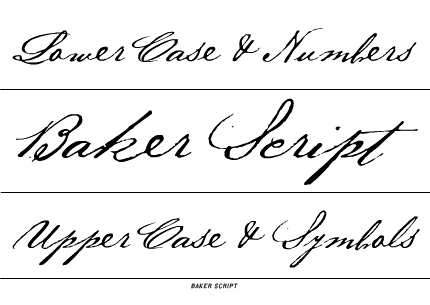 Lower Case & Numbers
Baker Script
Upper Case & Symbols
BAKER SCRIPT